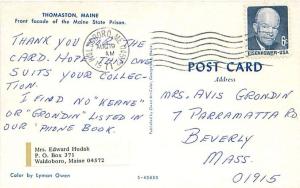 THOMASTON, MAINE
Front facade of the Maine State Prison.
THANK YOU FOR THE
CARD. HOPE THIS ONE
SUITS YOUR COLLEC-
TION.
I FIND NO "KEANE"
OR "GRONDIN" LISTED IN
OUR PHONE BOOK.
Mrs. Edward Hudak
P. O. Box 371
Waldoboro, Maine 04572
Color by Lyman Owen
S-65885
WALDOBORO, ME
AM
EISENHOWER·USA
POST CARD
Address
MRS. AVIS GRONDIN
7 PARRAMATTA RD
BEVERLY
MASS.
01915